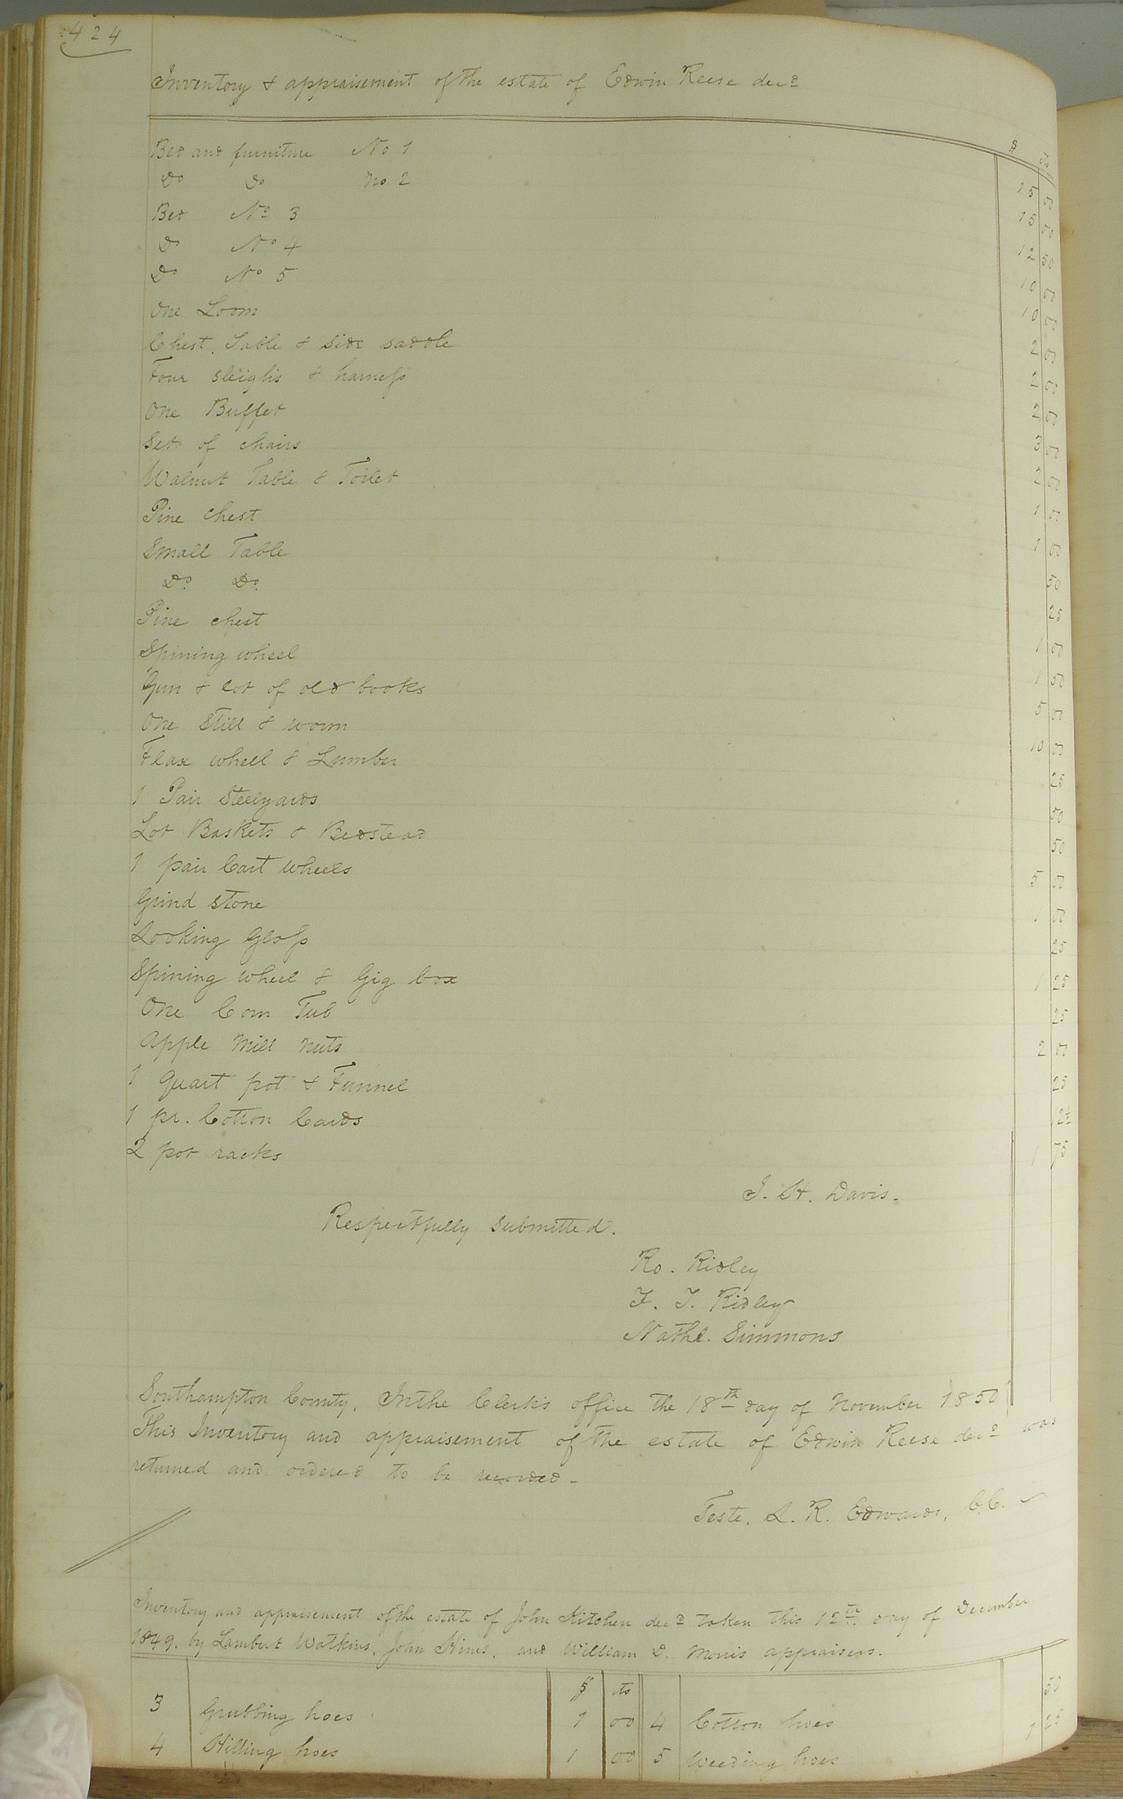 424
Inventory & appraisement of the estate of Edwin Reese decd
$
Bed and furniture No 1 15 00
Do Do No 2 15 00
Bed No 3 12 50
Do No 4 10 00
Do No 5 10 00
One Loom 2 00
Chest, Table & Side saddle 2 00
Four sleighs & harness 2 00
One Buffet 3 00
Set of chairs 2 00
Walnut Table & Toilet 1 00
Pine Chest 1 00
Small Table 50
Do. Do. 25
Pine chest 1 00
Spining wheel 1 50
Gun & lot of old books 5 00
One Still & worm 10 00
Flax wheel & Lumber 25
1 Pair Steelyards 50
Lot Baskets & Bedstead 50
1 pair Cart Wheels 5 00
Grind stone 1 00
Looking Glass 25
Spining wheel & Gig box 1 25
One Corn Tub 25
Apple Mill Nuts 2 00
1 Quart pot & Funnel 25
1 pr. Cotton Cards
2 pot racks 1 75
J. H. Davis.
Respectfully submitted.
Ro. Ridley
F. T. Ridley
Nathl. Simmons
Southampton County. In the Clerk's office the 18th day of November 1850
This Inventory and appraisement of the estate of Edwin Reese decd was
returned and ordered to be recorded.
Teste, L. R. Edwards, C.C.
Inventory and appraisement of the estate of John Kitchen decd taken this 12th day of December
1849. by Lambert Watkins, John Hines, and William D. Morris appraisers.
$ cts
3 Grubbing hoes 1 00 4 Cotton hoes 50
4 Hilling hoes 1 00 5 Weeding hoes 1 25